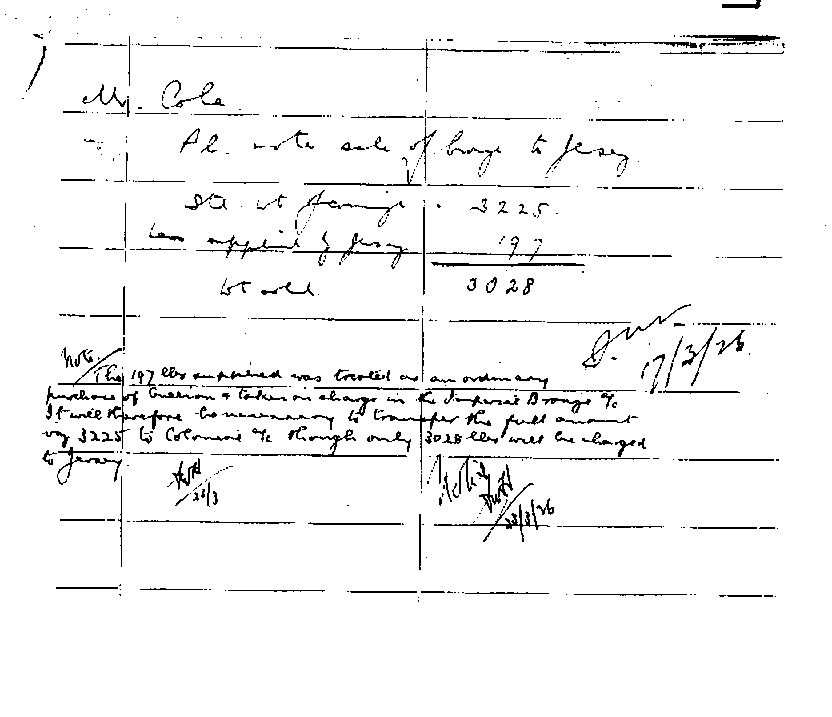 Mr. Cole
Pl. note sale of bronze to Jersey
Std wt 3225.
Less supplied by Jersey 197
Wt sold 3028
17/3/26
Note.
The 197 lbs supplied was treated as an ordinary
purchase of bullion & taken on charge in the Imperial Bronze A/c
It will therefore be necessary to transfer the full amount
viz 3225 to Colonial A/c though only 3028 lbs will be charged
to Jersey
23/3
23/3/26